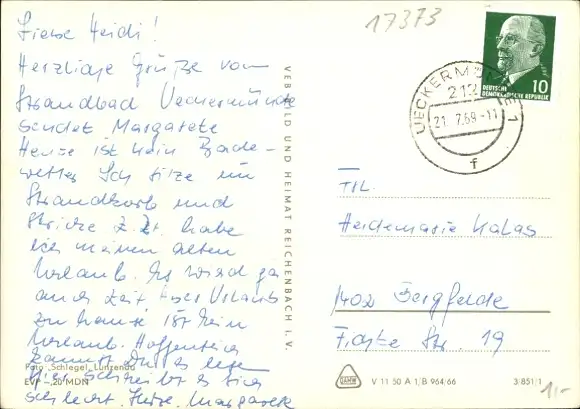 Liebe Heidi!
Herzliche Grüße vom
Strandbad Ueckermünde
sendet Margarete
Heute ist kein Bade-
wetter Ich sitze im
Strandkorb und
stricke z. Zt. habe
ich meinen alten
Urlaub. Es wird ja
auch Zeit Urlaub
zu hause ist kein
Urlaub. Hoffentlich
kannst Du es lesen
hier schreibt es sich
schlecht. Margarete
Foto: Schlegel, Lunzenau
EVP -,20 MDN
VEB BILD UND HEIMAT REICHENBACH I. V.
17373
10
DEUTSCHE
DEMOKRATISCHE REPUBLIK
UECKERMÜNDE 1
212
21. 7. 69 - 11
f
Heidemarie Kalas
1402 Bergfelde
Fichte Str. 19
V 11 50 A 1, B 964/66
3 851/1
1,-